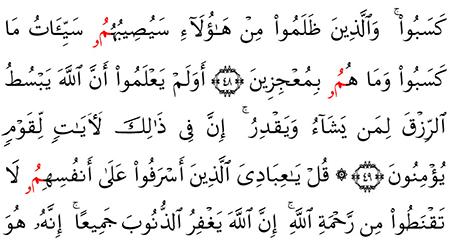 كَسَبُوا۟ ۚ وَٱلَّذِينَ ظَلَمُوا۟ مِنْ هَـٰٓؤُلَآءِ سَيُصِيبُهُمُۥ سَيِّـَٔاتُ مَا
كَسَبُوا۟ وَمَا هُمُۥ بِمُعْجِزِينَ ﴿٤٨﴾ أَوَلَمْ يَعْلَمُوا۟ أَنَّ ٱللَّهَ يَبْسُطُ
ٱلرِّزْقَ لِمَن يَشَآءُ وَيَقْدِرُ ۚ إِنَّ فِى ذَٰلِكَ لَـَٔايَـٰتٍ لِّقَوْمٍ
يُؤْمِنُونَ ﴿٤٩﴾ ۞ قُلْ يَـٰعِبَادِىَ ٱلَّذِينَ أَسْرَفُوا۟ عَلَىٰٓ أَنفُسِهِمُۥ لَا
تَقْنَطُوا۟ مِن رَّحْمَةِ ٱللَّهِ ۚ إِنَّ ٱللَّهَ يَغْفِرُ ٱلذُّنُوبَ جَمِيعًا ۚ إِنَّهُۥ هُوَ